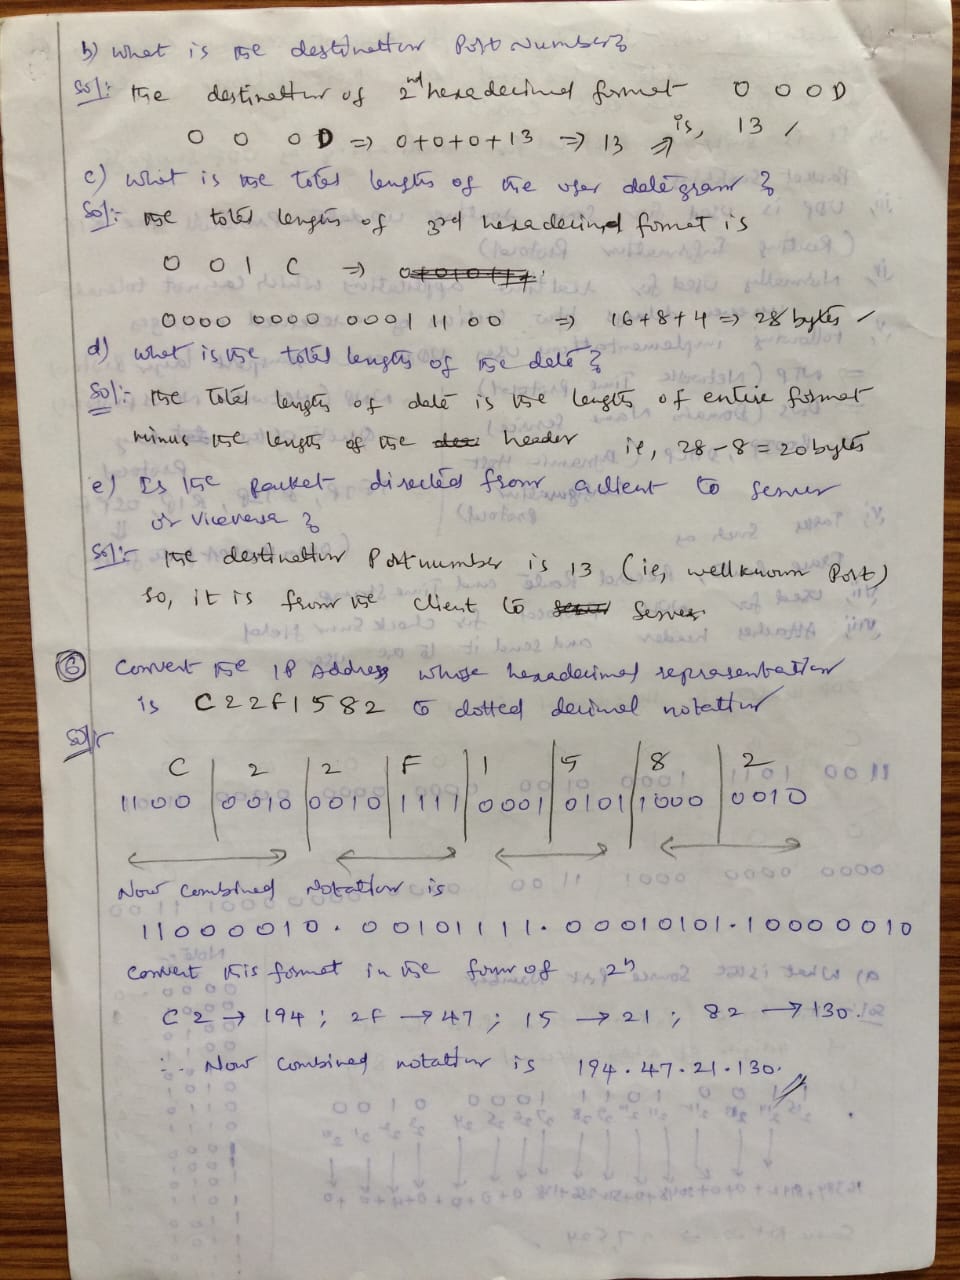 b) What is the destination Port Number?
Sol:- The destination of 2nd hexadecimal format 0 0 0 D
0 0 0 D => 0+0+0+13 => 13 => is, 13 /
c) What is the total length of the user datagram ?
Sol:- The total length of 3rd hexadecimal format is
0 0 1 C =>
0000 0000 0001 1100 => 16+8+4 => 28 bytes
d) What is the total length of the data ?
Sol:- The total length of data is the length of entire format
minus the length of the header ie, 28-8 = 20 bytes
e) Is the packet directed from a client to server
or Viceversa ?
Sol:- The destination Port number is 13 (ie, well known Port)
So, it is from the client to Server
6 Convert the IP Address whose hexadecimal representation
is C22F1582 to dotted decimal notation
Sol:-
C | 2 | 2 | F | 1 | 5 | 8 | 2
1100 | 0010 | 0010 | 1111 | 0001 | 0101 | 1000 | 0010
Now Combined Notation is
11000010.00101111.00010101.10000010
Convert this format in the form of 2^n
C2 → 194 ; 2F → 47 ; 15 → 21 ; 82 → 130.
∴ Now Combined notation is 194.47.21.130.